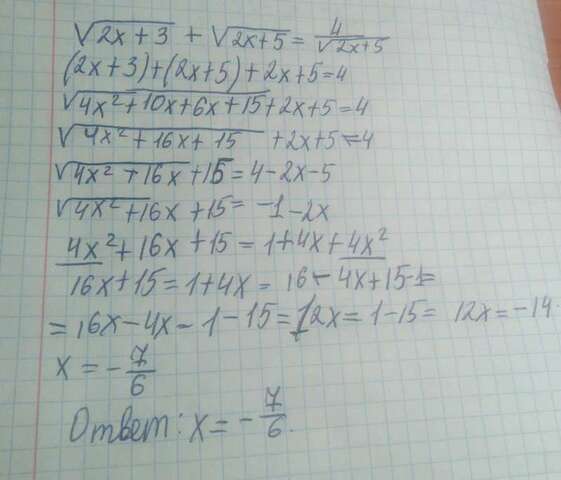 √2x+3 + √2x+5 = 4/√2x+5
(2x+3)+(2x+5)+2x+5=4
√4x²+10x+6x+15+2x+5=4
√4x²+16x+15 +2x+5=4
√4x²+16x+15=4-2x-5
√4x²+16x+15=-1-2x
4x²+16x+15=1+4x+4x²
16x+15=1+4x=16-4x+15-1=
=16x-4x-1-15=12x=1-15= 12x=-14
x=-7/6
Ответ: x=-7/6.